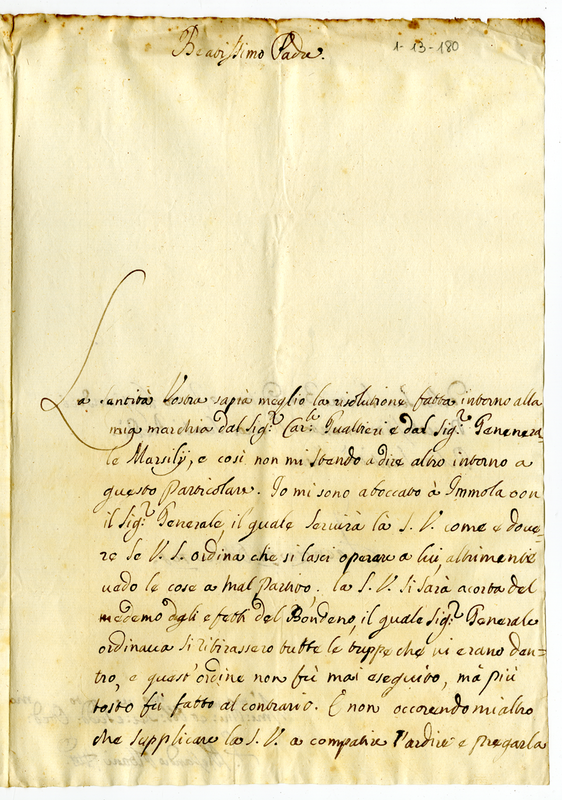 Beatissimo Padre.
1-13-180
La Santità Vostra saprà meglio la risolutione fatta intorno alla
mia marchia dal Sig.r Car.le Gualtieri e dal Sig.r Genera-
le Marsilÿ, e così non mi stendo a dire altro intorno a
questo particolare. Io mi sono aboccato à Immola con
il Sig.r Generale, il quale servirà la S. V. come è dove-
re se V. S. ordina che si lasci operare a lui, altrimente
vedo le cose a mal partito. la S. V. si sarà acorta del
medemo dgli efetti del Bondeno, il quale Sig.r Generale
ordinava si ritirassero tutte le truppe che vi erano den=
tro, e quest'ordine non fù mai eseguito, mà più
tosto fù fatto al contrario. E non occorendomi altro
che supplicare la S. V. a compatire l'ardire e pregarla